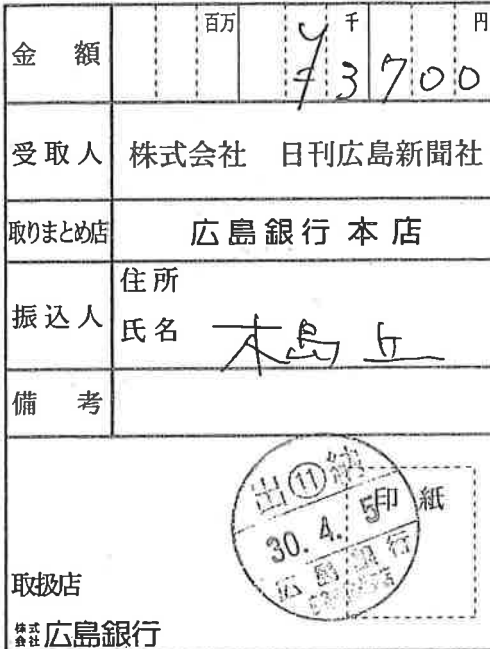 百万 千 円
金額 ¥3700
受取人 株式会社 日刊広島新聞社
取りまとめ店 広島銀行本店
振込人 住所
氏名 木島 丘
備考
出⑪納
30.4.5
印紙
広島銀行
取扱店
株式会社広島銀行